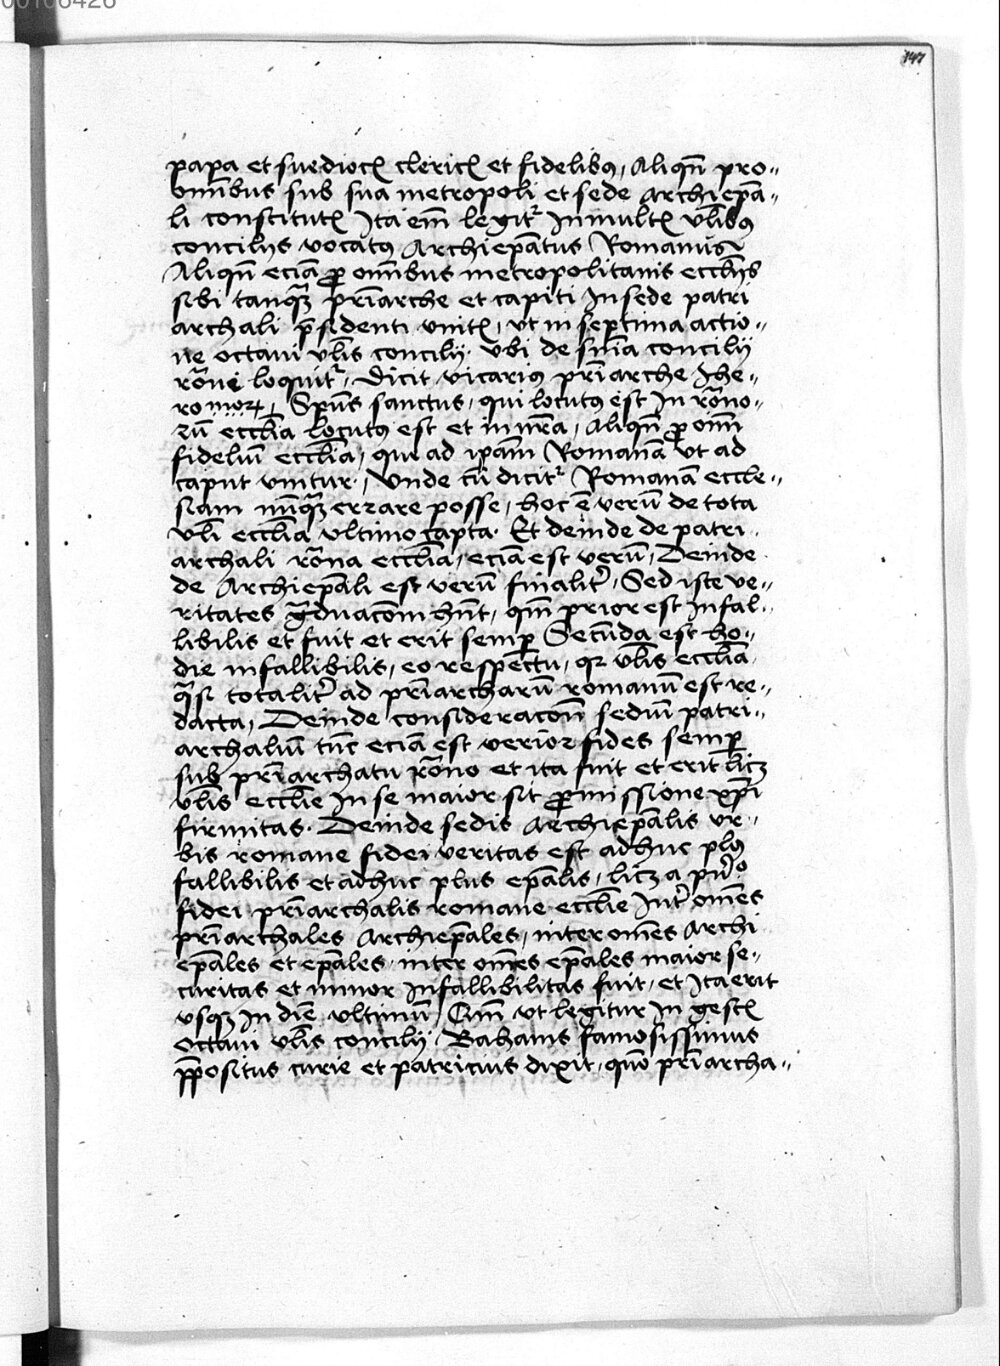 00106426
147
papa et sue dioc̄ cleric̄ et fidelibꝯ, Aliqn̄ pro„
om̄ibus sub sua metropoli et sede Archiep̄a„
li constitut̄ Ita em̄ legit᷑ In mult̄ vl̄ibꝯ
concilijs vocatꝯ Archiep̄atus Romanus
Aliqn̄ eciā ꝓ om̄ibus metropolitanis eccl̄ijs
sibi tanqꝫ pr̄iarche et capiti In sede patri
archali p̄sidenti vnit̄, vt in septima actio„
ne octaui vl̄is concilij. vbi de sn̄ia concilij
rōne loquit᷑, Dicit vicariꝯ pr̄iarche Jhe„
romoꝝ, Sp̄us sanctus, qui locutꝯ est In rōno„
rū eccl̄ia locutꝯ est et in nr̄a, Aliqn̄ ꝓ om̄i
fideliū eccl̄ia, que ad ip̄am Romanā vt ad
caput vnitur, Vnde cū dicit᷑ Romanā eccle„
siam nūqꝫ errare posse, hoc ē verū de tota
vl̄i eccl̄ia vltimo capta. Et deinde de patri„
archali rōna eccl̄ia, eciā est verū, Deinde
de Archiep̄ali est verū finalit᷑, Sed iste ve„
ritates g̈duacōm hn̄t, qm̄ prior est Infal„
libilis et fuit et erit semꝑ Secūda est ho„
die infallibilis, eo respectu, qꝛ vl̄is eccl̄ia
q̈si totalit᷑ ad pr̄iarchatū romanū est re„
dacta, Deinde consideracōn̄ sediū patri„
archaliū tūc eciā est verior fides semꝑ
sub pr̄iarchatu rōno et ita fuit et erit licꝫ
vl̄is eccl̄ie In se maior sit ꝓmissione xp̄i
firmitas. Deinde sedis Archiep̄alis vr„
bis romane fidei veritas est adhuc plꝯ
fallibilis et adhuc plus ep̄alis, licꝫ a pn̊
fidei pr̄iarchalis romane eccl̄ie Int᷑ om̄es
pr̄iarchales Archiep̄ales, inter om̄es Archi
ep̄ales et ep̄ales, inter om̄es ep̄ales maior se„
curitas et minor Infallibilitas fuit, et Ita erit
vsqꝫ In diē vltimū, Cum vt legitur In gest̄
octaui vl̄is concilij, Bahanis famosissimus
p̄positus curie et patricius dixit, quō pr̄iarcha„